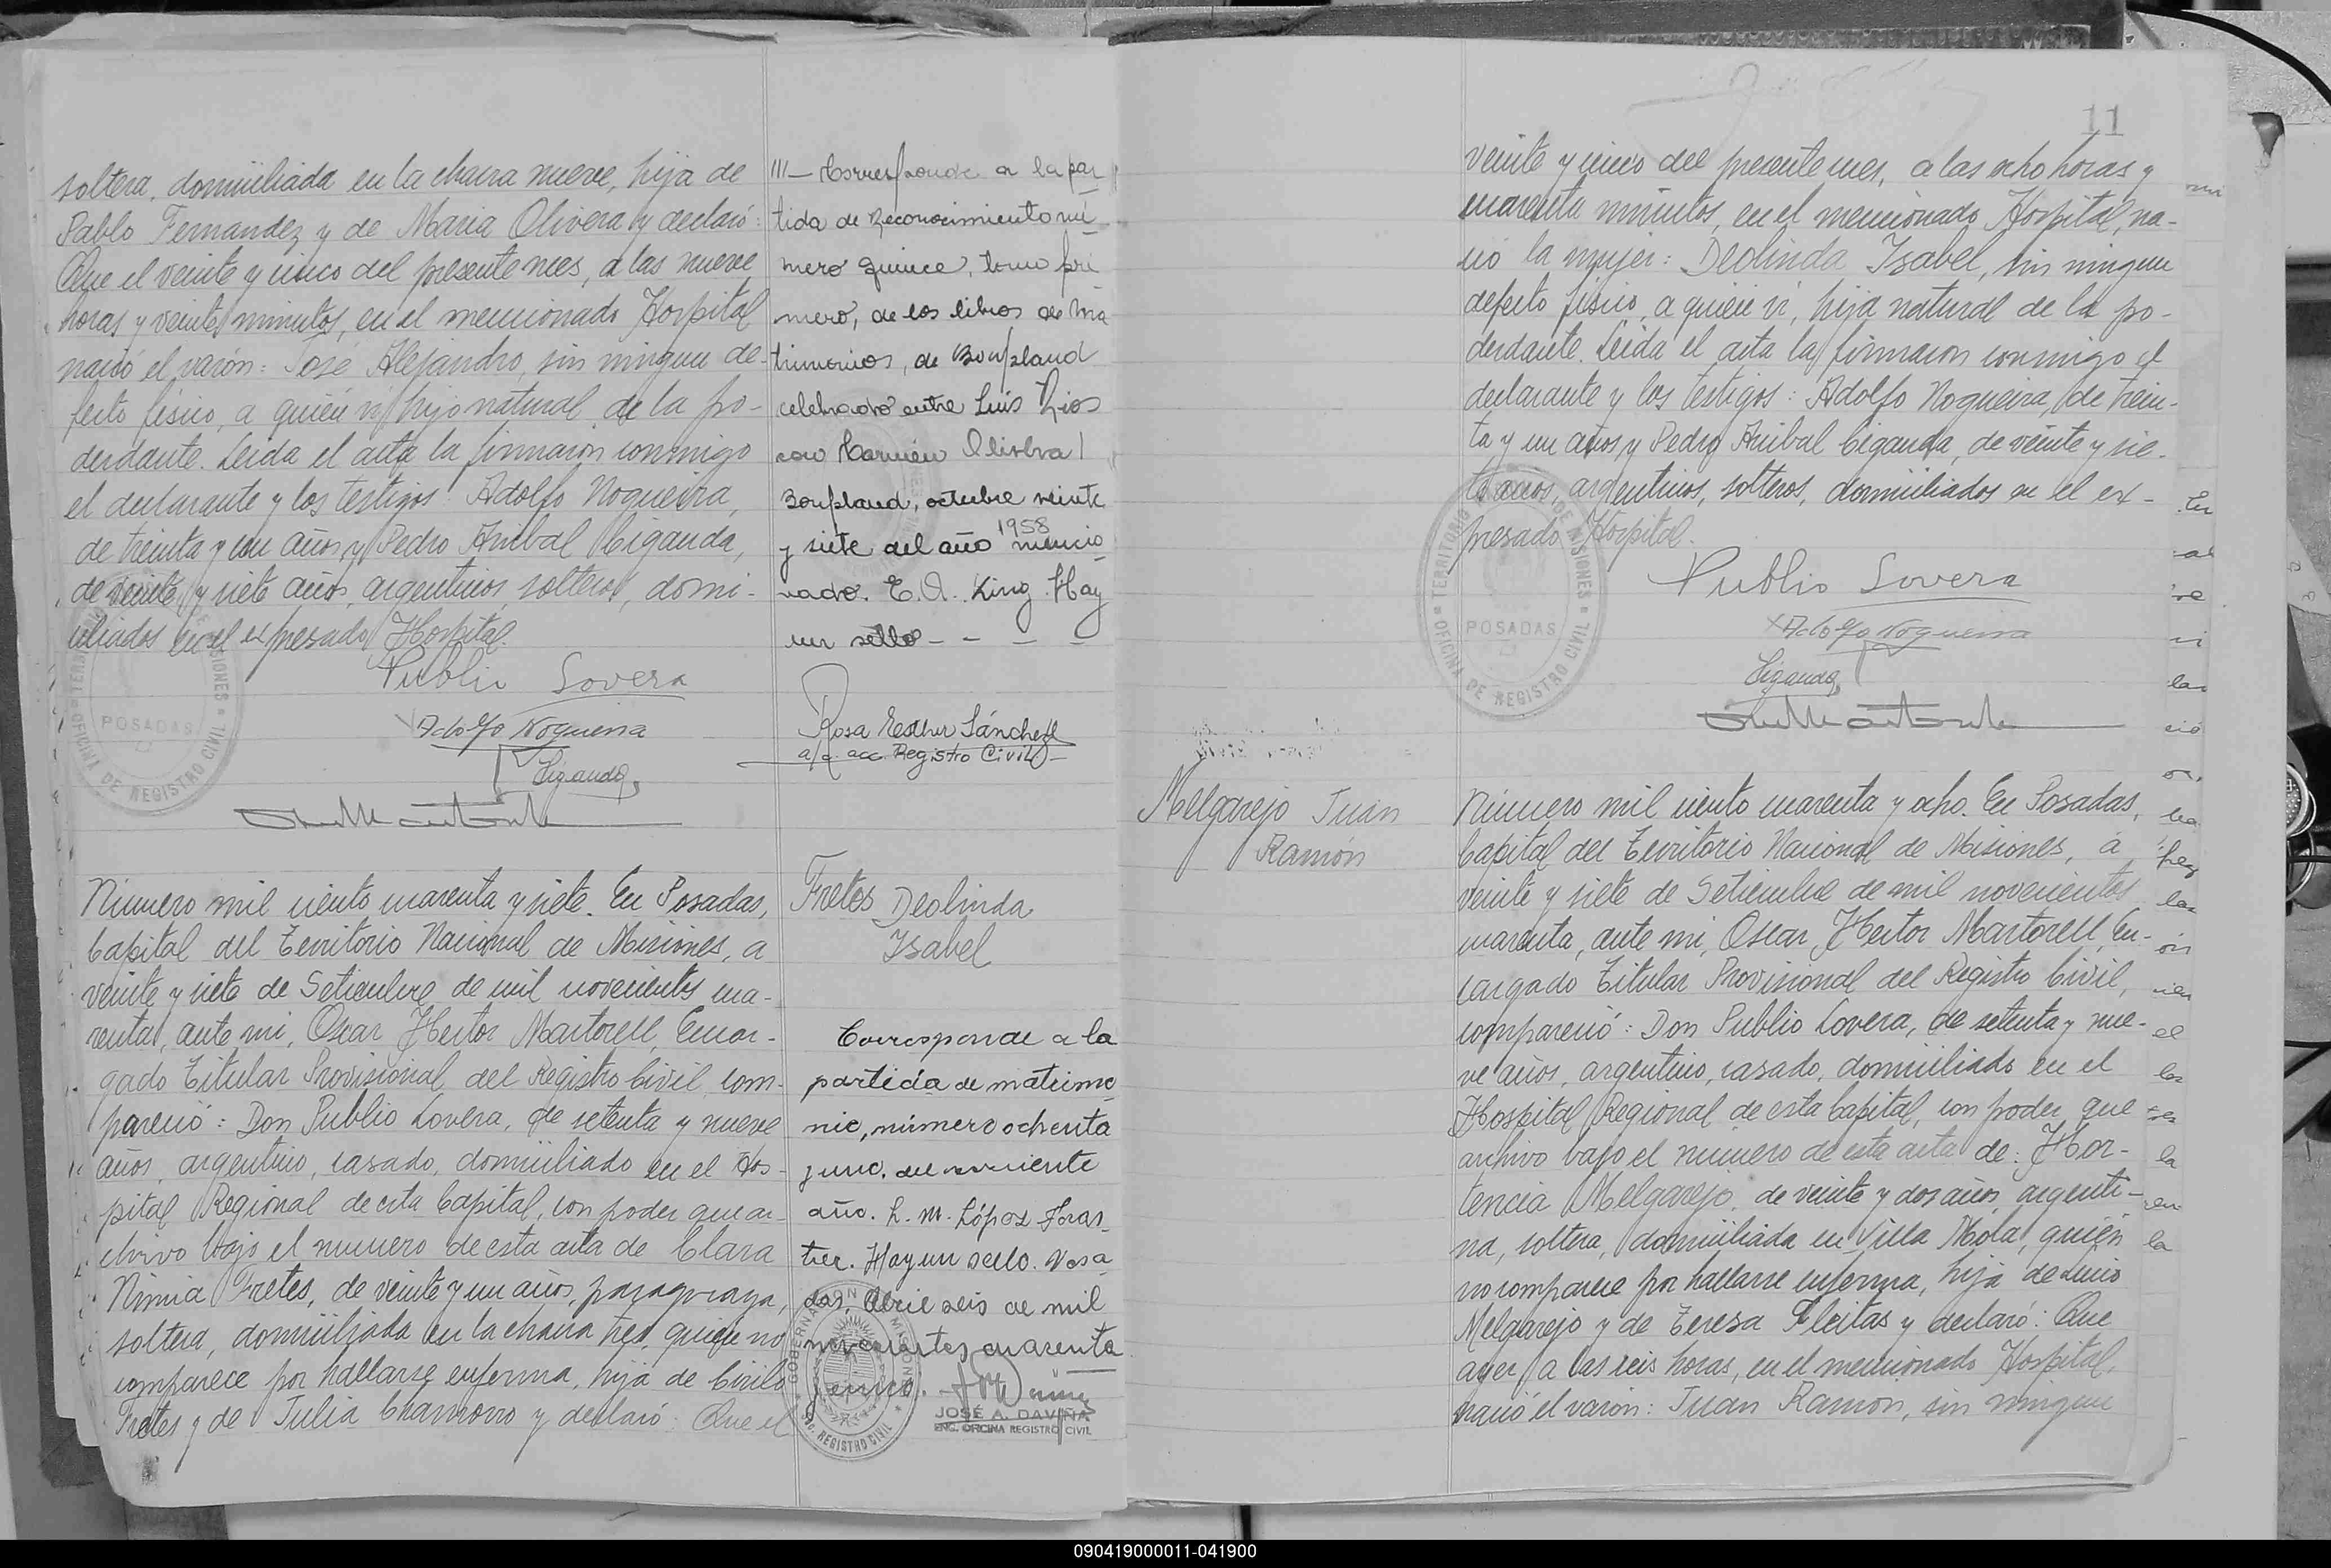 soltera, domiciliada en la chacra nueve, hija de
Pablo Fernandez y de Maria Olivera y declaró:
Que el veinte y cinco del presente mes, a las nueve
horas y veinte minutos, en el mencionado Hospital
nació el varón: José Alejandro, sin ningun de-
fecto físico, a quién ví, hijo natural de la po-
derdante. Leida el acta la firmaron conmigo
el declarante y los testigos: Adolfo Nogueira,
de treinta y un años, y Pedro Anibal Ciganda,
de veinte y siete años, argentinos, solteros, domi-
ciliados en el expresado Hospital.
Publio Lovera
Adolfo Nogueira
Ciganda
III— Corresponde a la par
tida de Reconocimiento nú
mero quince, tomo pri
mero, de los libros de ma
trimonios, de Bonpland
celebrado entre Luis Rios
con Carmen
Bonpland, octubre veinte
1958
y siete del año mencio
nado. E. A. King. Hay
un sello - - - -
Rosa Esther Sánchez
a/c. acc. Registro Civil
POSADAS
OFICINA DE REGISTRO CIVIL
Número mil ciento cuarenta y siete. En Posadas,
Capital del Territorio Nacional de Misiones, a
veinte y siete de Setiembre de mil novecientos cua-
renta, ante mi, Oscar Hector Martorell, Encar-
gado Titular Provisional del Registro Civil, com-
pareció: Don Publio Lovera, de setenta y nueve
años, argentino, casado, domiciliado en el Hos-
pital Regional de esta Capital, con poder que ar-
chivo bajo el número de esta acta de Clara
Nimia Fretes, de veinte y un años, paraguaya,
soltera, domiciliada en la chacra tres, quién no
comparece por hallarse enferma, hija de Cirilo
Fretes y de Julia Chamorro y declaró: Que el
Fretes Deolinda
Isabel
Corresponde a la
partida de matrimo
nio, número ochenta
y uno, del corriente
año. L. M. López Foras
tier. Hay un sello. Posa
das, Abril seis de mil
novecientos cuarenta
y cinco.
JOSÉ A. DAVIÑA
ENC. OFICINA REGISTRO CIVIL
11
veinte y cinco del presente mes, a las ocho horas y
cuarenta minutos, en el mencionado Hospital, na-
ció la mujer: Deolinda Isabel, sin ningun
defecto físico, a quién ví, hija natural de la po-
derdante. Leída el acta la firmaron conmigo el
declarante y los testigos: Adolfo Nogueira, de trein-
ta y un años, y Pedro Anibal Ciganda, de veinte y sie-
te años, argentinos, solteros, domiciliados en el ex-
presado Hospital.
Publio Lovera
Adolfo Nogueira
Ciganda
TERRITORIO DE MISIONES
POSADAS
OFICINA DE REGISTRO CIVIL
Melgarejo Juan
Ramón
Número mil ciento cuarenta y ocho. En Posadas,
Capital del Territorio Nacional de Misiones, á
veinte y siete de Setiembre de mil novecientos
cuarenta, ante mi, Oscar Hector Martorell, En-
cargado Titular Provisional del Registro Civil,
compareció: Don Publio Lovera, de setenta y nue-
ve años, argentino, casado, domiciliado en el
Hospital Regional de esta Capital, con poder que
archivo bajo el número de esta acta de: Hor-
tencia Melgarejo, de veinte y dos años, argenti-
na, soltera, domiciliada en Villa Mola, quién
no comparece por hallarse enferma, hija de Lucio
Melgarejo y de Teresa Fleitas y declaró: Que
ayer, a las seis horas, en el mencionado Hospital,
nació el varón: Juan Ramón, sin ningun
090419000011-041900